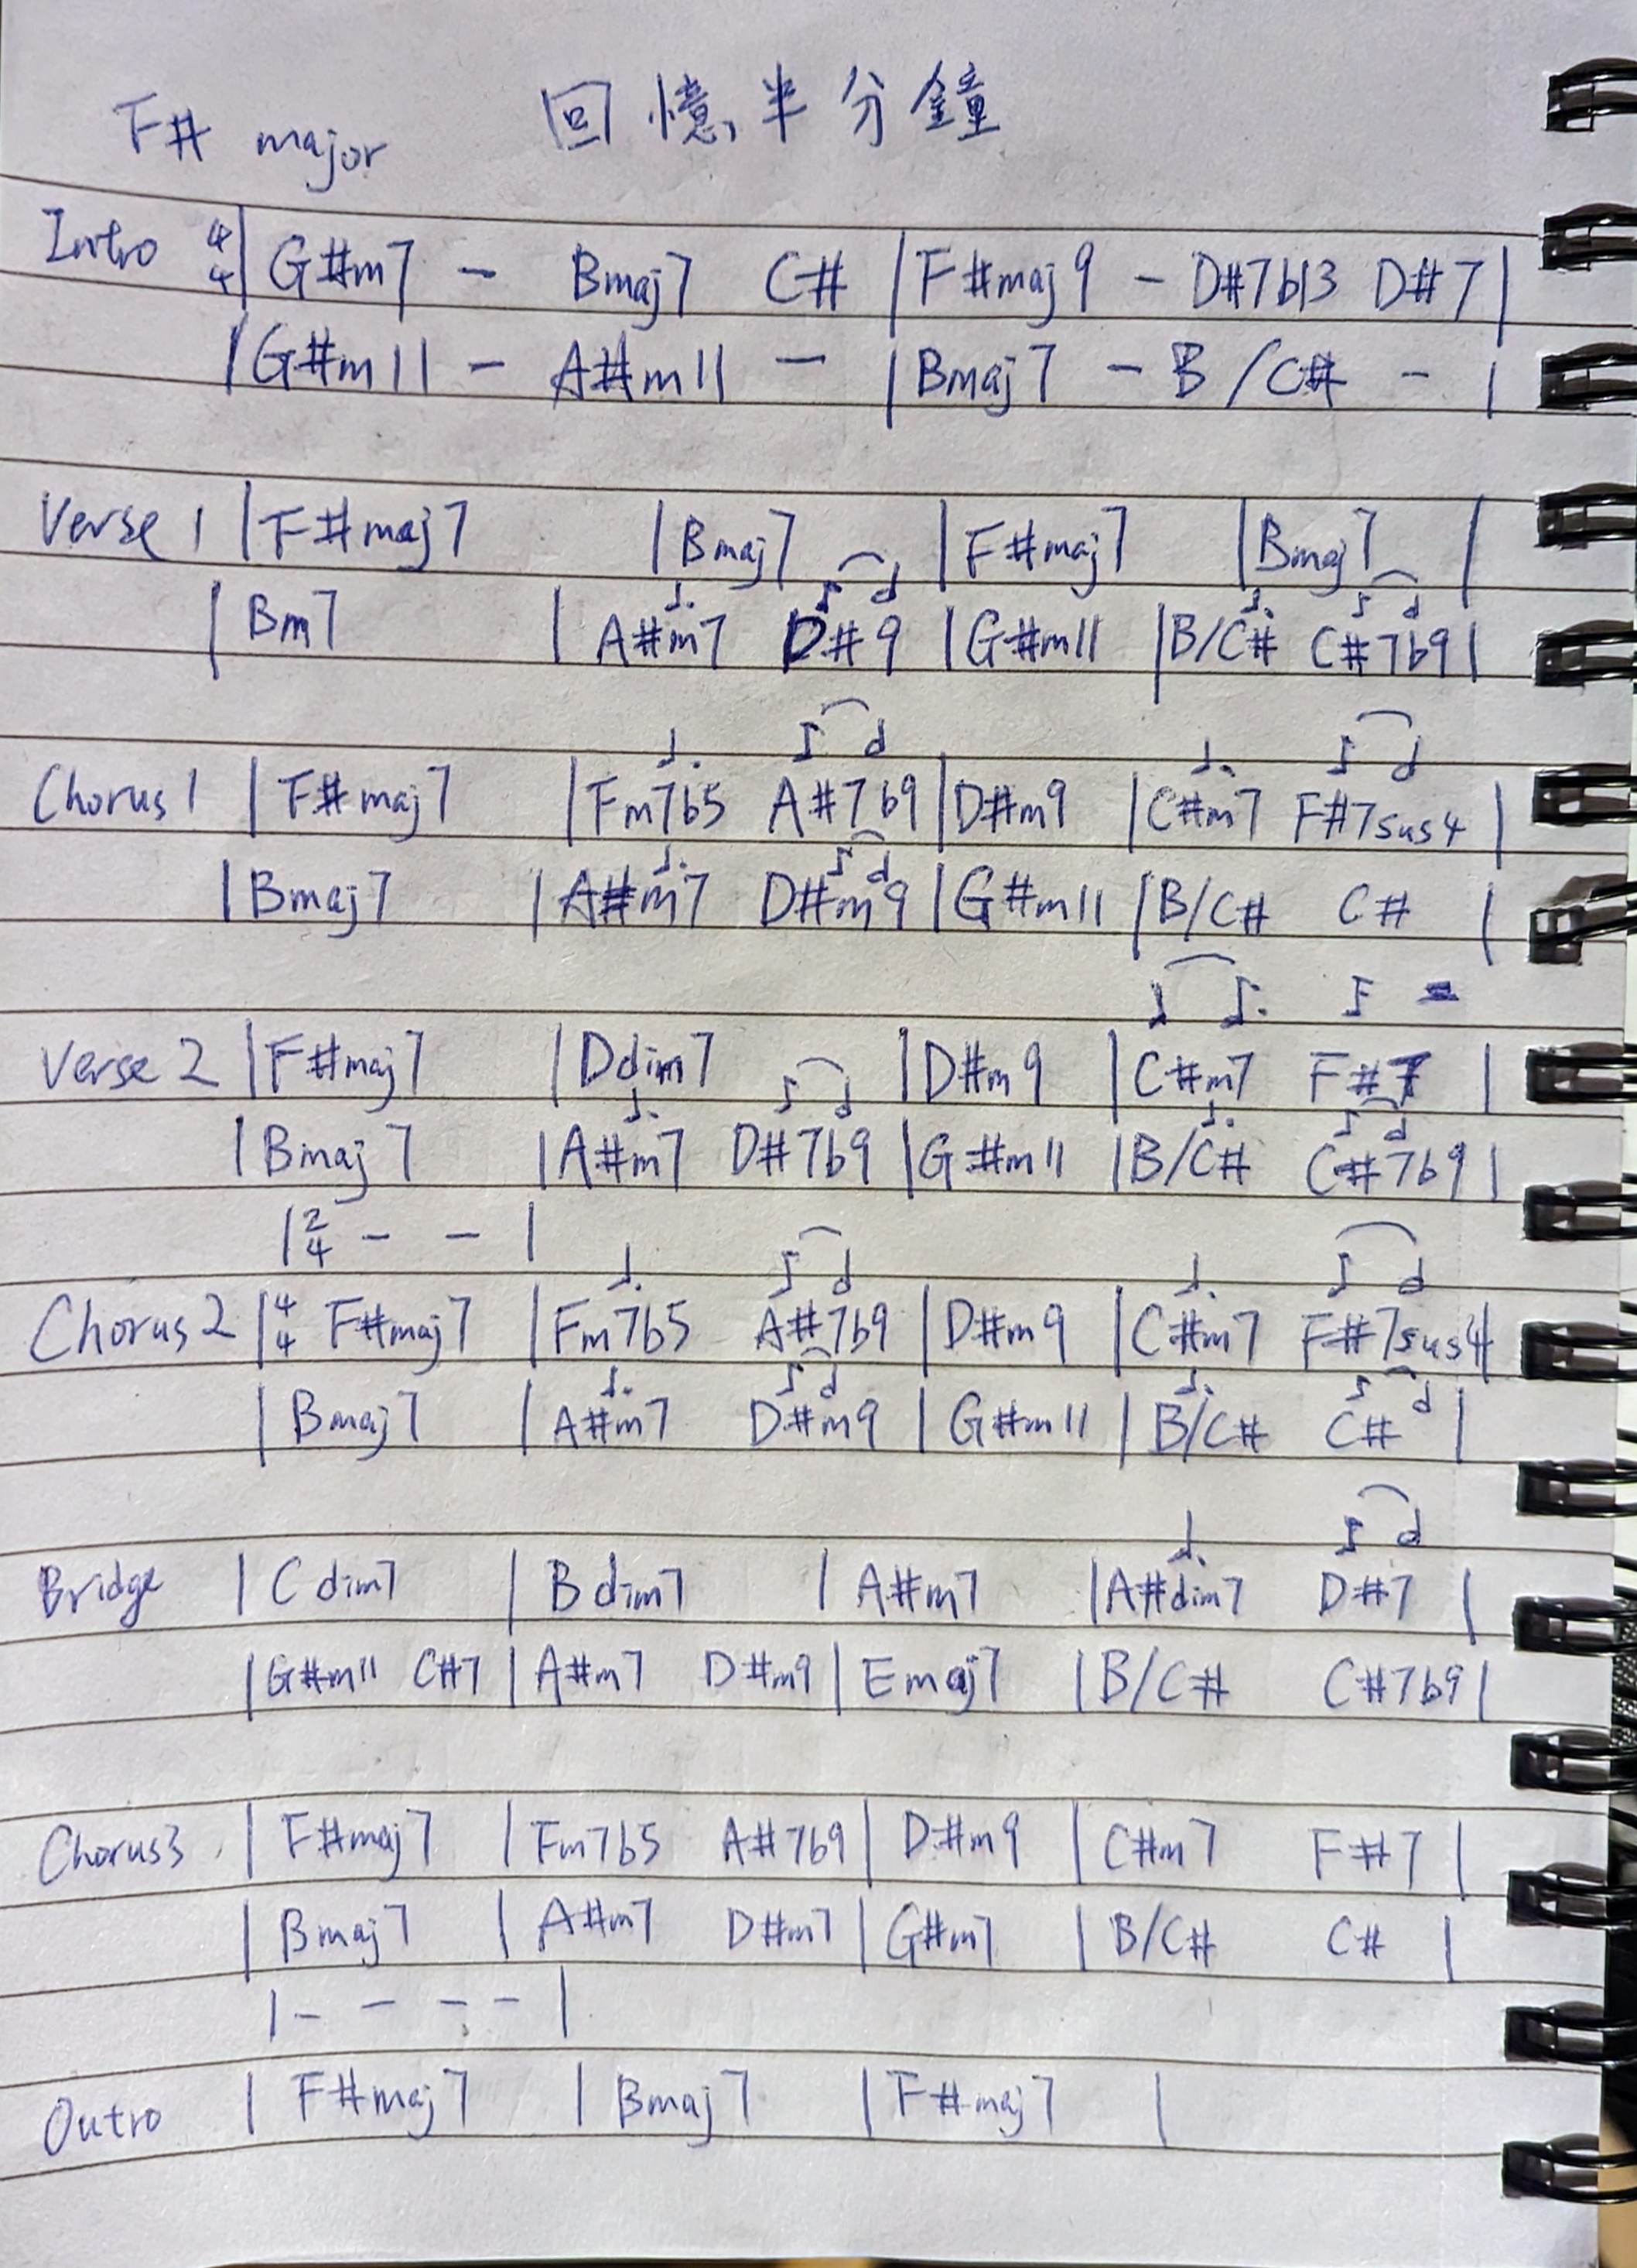 F# major 回憶半分鐘
Intro 4/4 | G#m7 - Bmaj7 C# | F#maj9 - D#7b13 D#7 |
| G#m11 - A#m11 - | Bmaj7 - B/C# - |
Verse 1 | F#maj7 | Bmaj7 | F#maj7 | Bmaj7 |
| Bm7 | A#m7 D#9 | G#m11 | B/C# C#7b9 |
Chorus1 | F#maj7 | Fm7b5 A#7b9 | D#m9 | C#m7 F#7sus4 |
| Bmaj7 | A#m7 D#m9 | G#m11 | B/C# C# |
Verse 2 | F#maj7 | Ddim7 | D#m9 | C#m7 F#7 |
| Bmaj7 | A#m7 D#7b9 | G#m11 | B/C# C#7b9 |
| 2/4 - - |
Chorus2 | 4/4 F#maj7 | Fm7b5 A#7b9 | D#m9 | C#m7 F#7sus4 |
| Bmaj7 | A#m7 D#m9 | G#m11 | B/C# C# |
Bridge | Cdim7 | Bdim7 | A#m7 | A#dim7 D#7 |
| G#m11 C#7 | A#m7 D#m9 | Emaj7 | B/C# C#7b9 |
Chorus3 | F#maj7 | Fm7b5 A#7b9 | D#m9 | C#m7 F#7 |
| Bmaj7 | A#m7 D#m7 | G#m7 | B/C# C# |
| - - - - |
Outro | F#maj7 | Bmaj7 | F#maj7 |